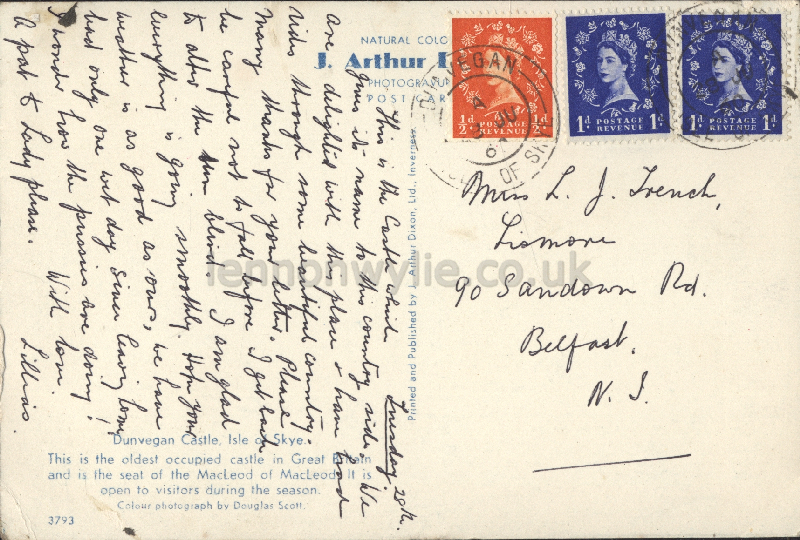 NATURAL COLO
J. Arthur D
PHOTOGRAPH
POST CAR
Tuesday 28th.
This is the Castle which
gives its name to this country side. We
are delighted with the place & have good
rides through some beautiful country.
Many thanks for your letter. Please
be careful not to fall before I get back
to alter the sun blind. I am glad
everything is going smoothly. Hope your
weather is as good as ours, we have
had only one wet day since leaving home
I wonder how the pussies are doing!
A pat to Lady please. With love
Lillias.
Printed and Published by J. Arthur Dixon, Ltd., Inverness.
Dunvegan Castle, Isle of Skye.
This is the oldest occupied castle in Great Britain
and is the seat of the MacLeod of MacLeod. It is
open to visitors during the season.
Colour photograph by Douglas Scott.
3793
VEGAN
A
JU
OF SK
½d POSTAGE REVENUE ½d
1d POSTAGE REVENUE 1d
1d POSTAGE REVENUE 1d
Miss L. J. French,
Lismore
90 Sandown Rd.
Belfast,
N. I.
lennonwylie.co.uk